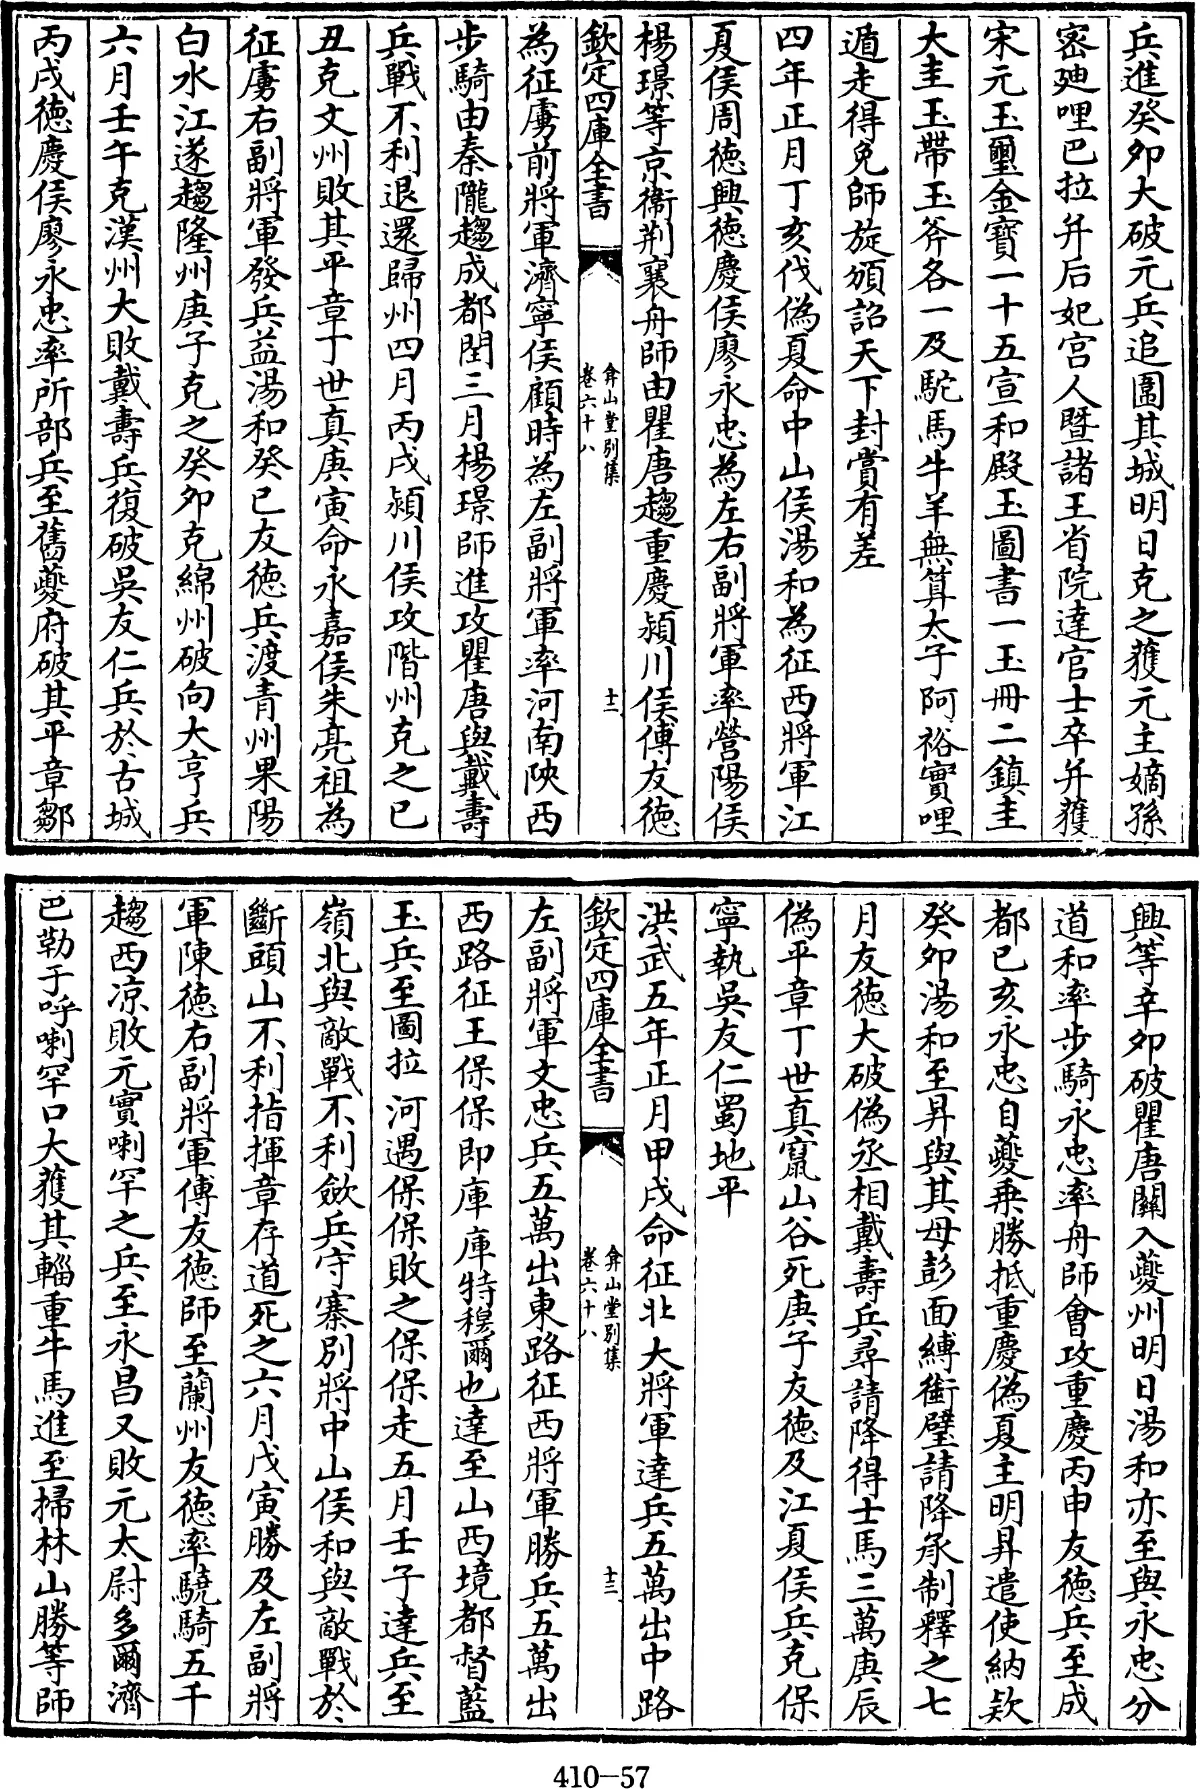 兵進癸卯大破元兵追圍其城明日克之獲元主嫡孫
密廸哩巴拉并后妃宮人暨諸王省院達官士卒并獲
宋元玉璽金寶一十五宣和殿玉圖書一玉冊二鎮圭
大圭玉帶玉斧各一及駝馬牛羊無算太子阿裕實哩
遁走得免師旋頒詔天下封賞有差
四年正月丁亥伐偽夏命中山侯湯和為征西將軍江
夏侯周德興德慶侯廖永忠為左右副將軍率營陽侯
楊璟等京衛荆襄舟師由瞿唐趨重慶潁川侯傅友德
欽定四庫全書
弇山堂別集
卷六十八
十二
為征虜前將軍濟寧侯顧時為左副將軍率河南陜西
步騎由秦隴趨成都閏三月楊璟師進攻瞿唐與戴壽
兵戰不利退還歸州四月丙戌潁川侯攻階州克之已
丑克文州敗其平章丁世真庚寅命永嘉侯朱亮祖為
征虜右副將軍發兵益湯和癸巳友德兵渡青州果陽
白水江遂趨隆州庚子克之癸卯克綿州破向大亨兵
六月壬午克漢州大敗戴壽兵復破吳友仁兵於古城
丙戌德慶侯廖永忠率所部兵至舊夔府破其平章鄒
興等辛卯破瞿唐關入夔州明日湯和亦至與永忠分
道和率步騎永忠率舟師會攻重慶丙申友德兵至成
都已亥永忠自夔乗勝抵重慶偽夏主明昇遣使納欵
癸卯湯和至昇與其母彭面縛銜璧請降承制釋之七
月友德大破偽丞相戴壽兵尋請降得士馬三萬庚辰
偽平章丁世真竄山谷死庚子友德及江夏侯兵克保
寧執吳友仁蜀地平
洪武五年正月甲戌命征北大將軍達兵五萬出中路
欽定四庫全書
弇山堂別集
卷六十八
十三
左副將軍文忠兵五萬出東路征西將軍勝兵五萬出
西路征王保保即庫庫特穆爾也達至山西境都督藍
玉兵至圖拉河遇保保敗之保保走五月壬子達兵至
嶺北與敵戰不利歛兵守寨別將中山侯和與敵戰於
斷頭山不利指揮章存道死之六月戊寅勝及左副將
軍陳德右副將軍傅友德師至蘭州友德率驍騎五千
趨西凉敗元實喇罕之兵至永昌又敗元太尉多爾濟
巴勒于呼喇罕口大獲其輜重牛馬進至掃林山勝等師
410—57